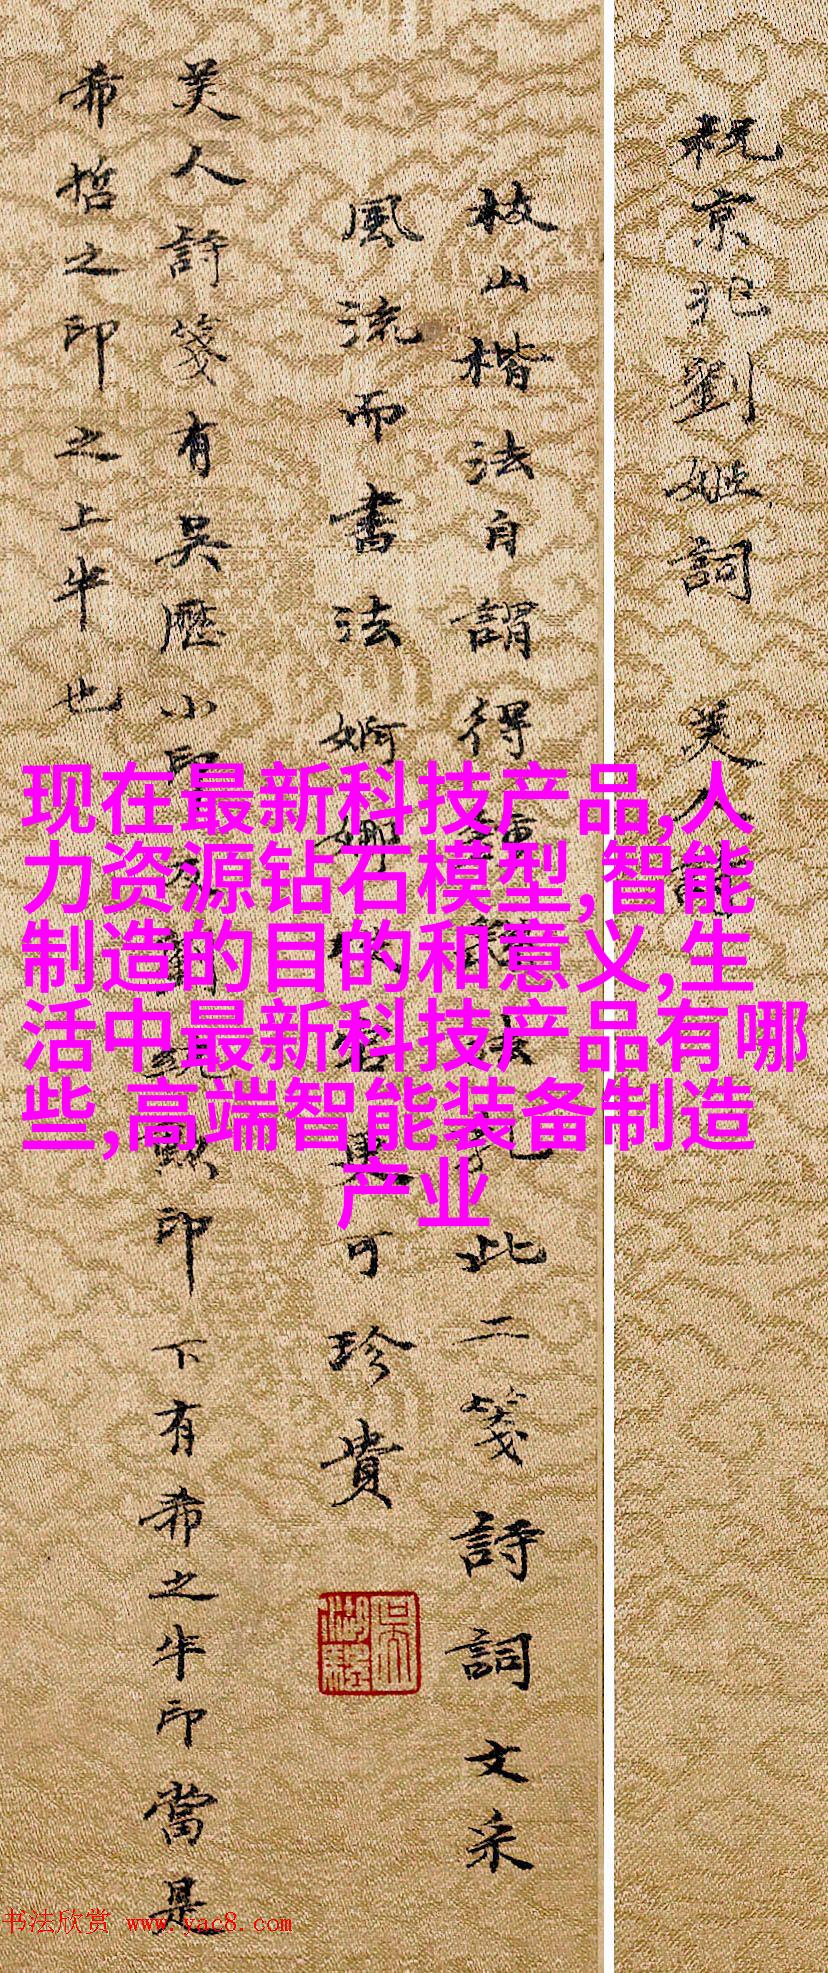 祝京兆劉姬詞 美人
枝山楷法自謂得此二箋詩詞文采
風流而書法婀娜可珍貴
美人詩箋有吳歷小印印下有希之半印當是
希哲之印之上半也
现在最新科技产品,人
力资源钻石模型,智能
制造的目的和意义,生
活中最新科技产品有哪
些,高端智能装备制造
产业
书法欣赏 www.yac8.com